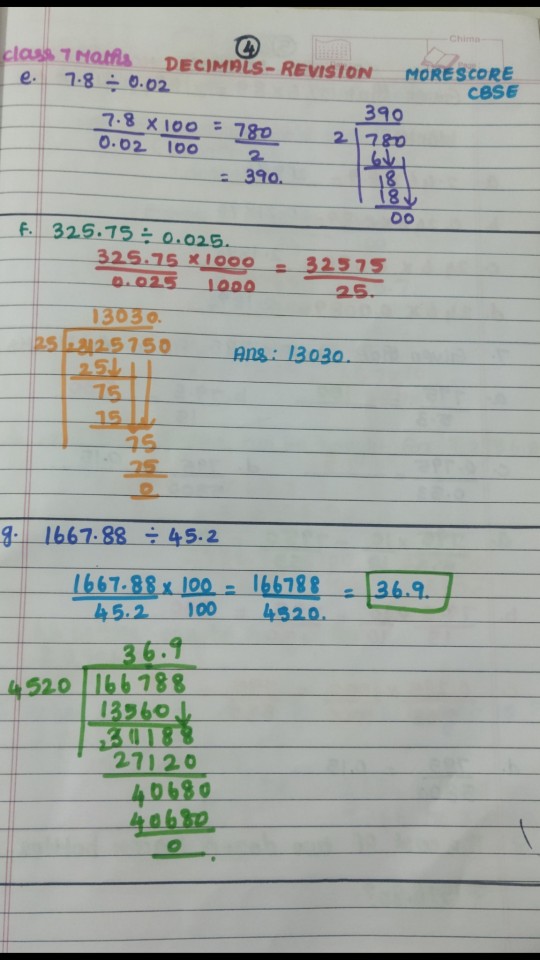 4
Class 7 Maths
DECIMALS - REVISION
MORESCORE
CBSE
e. 7.8 ÷ 0.02
7.8/0.02 × 100/100 = 780/2
= 390.
390
2 780
6↓
18
18↓
00
f. 325.75 ÷ 0.025.
325.75/0.025 × 1000/1000 = 32575/25.
13030.
25 325750
25↓
75
75
75
75
0
Ans: 13030.
g. 1667.88 ÷ 45.2
1667.88/45.2 × 100/100 = 166788/4520. = 36.9.
36.9
4520 166788
13560↓
31188
27120
40680
40680
0.